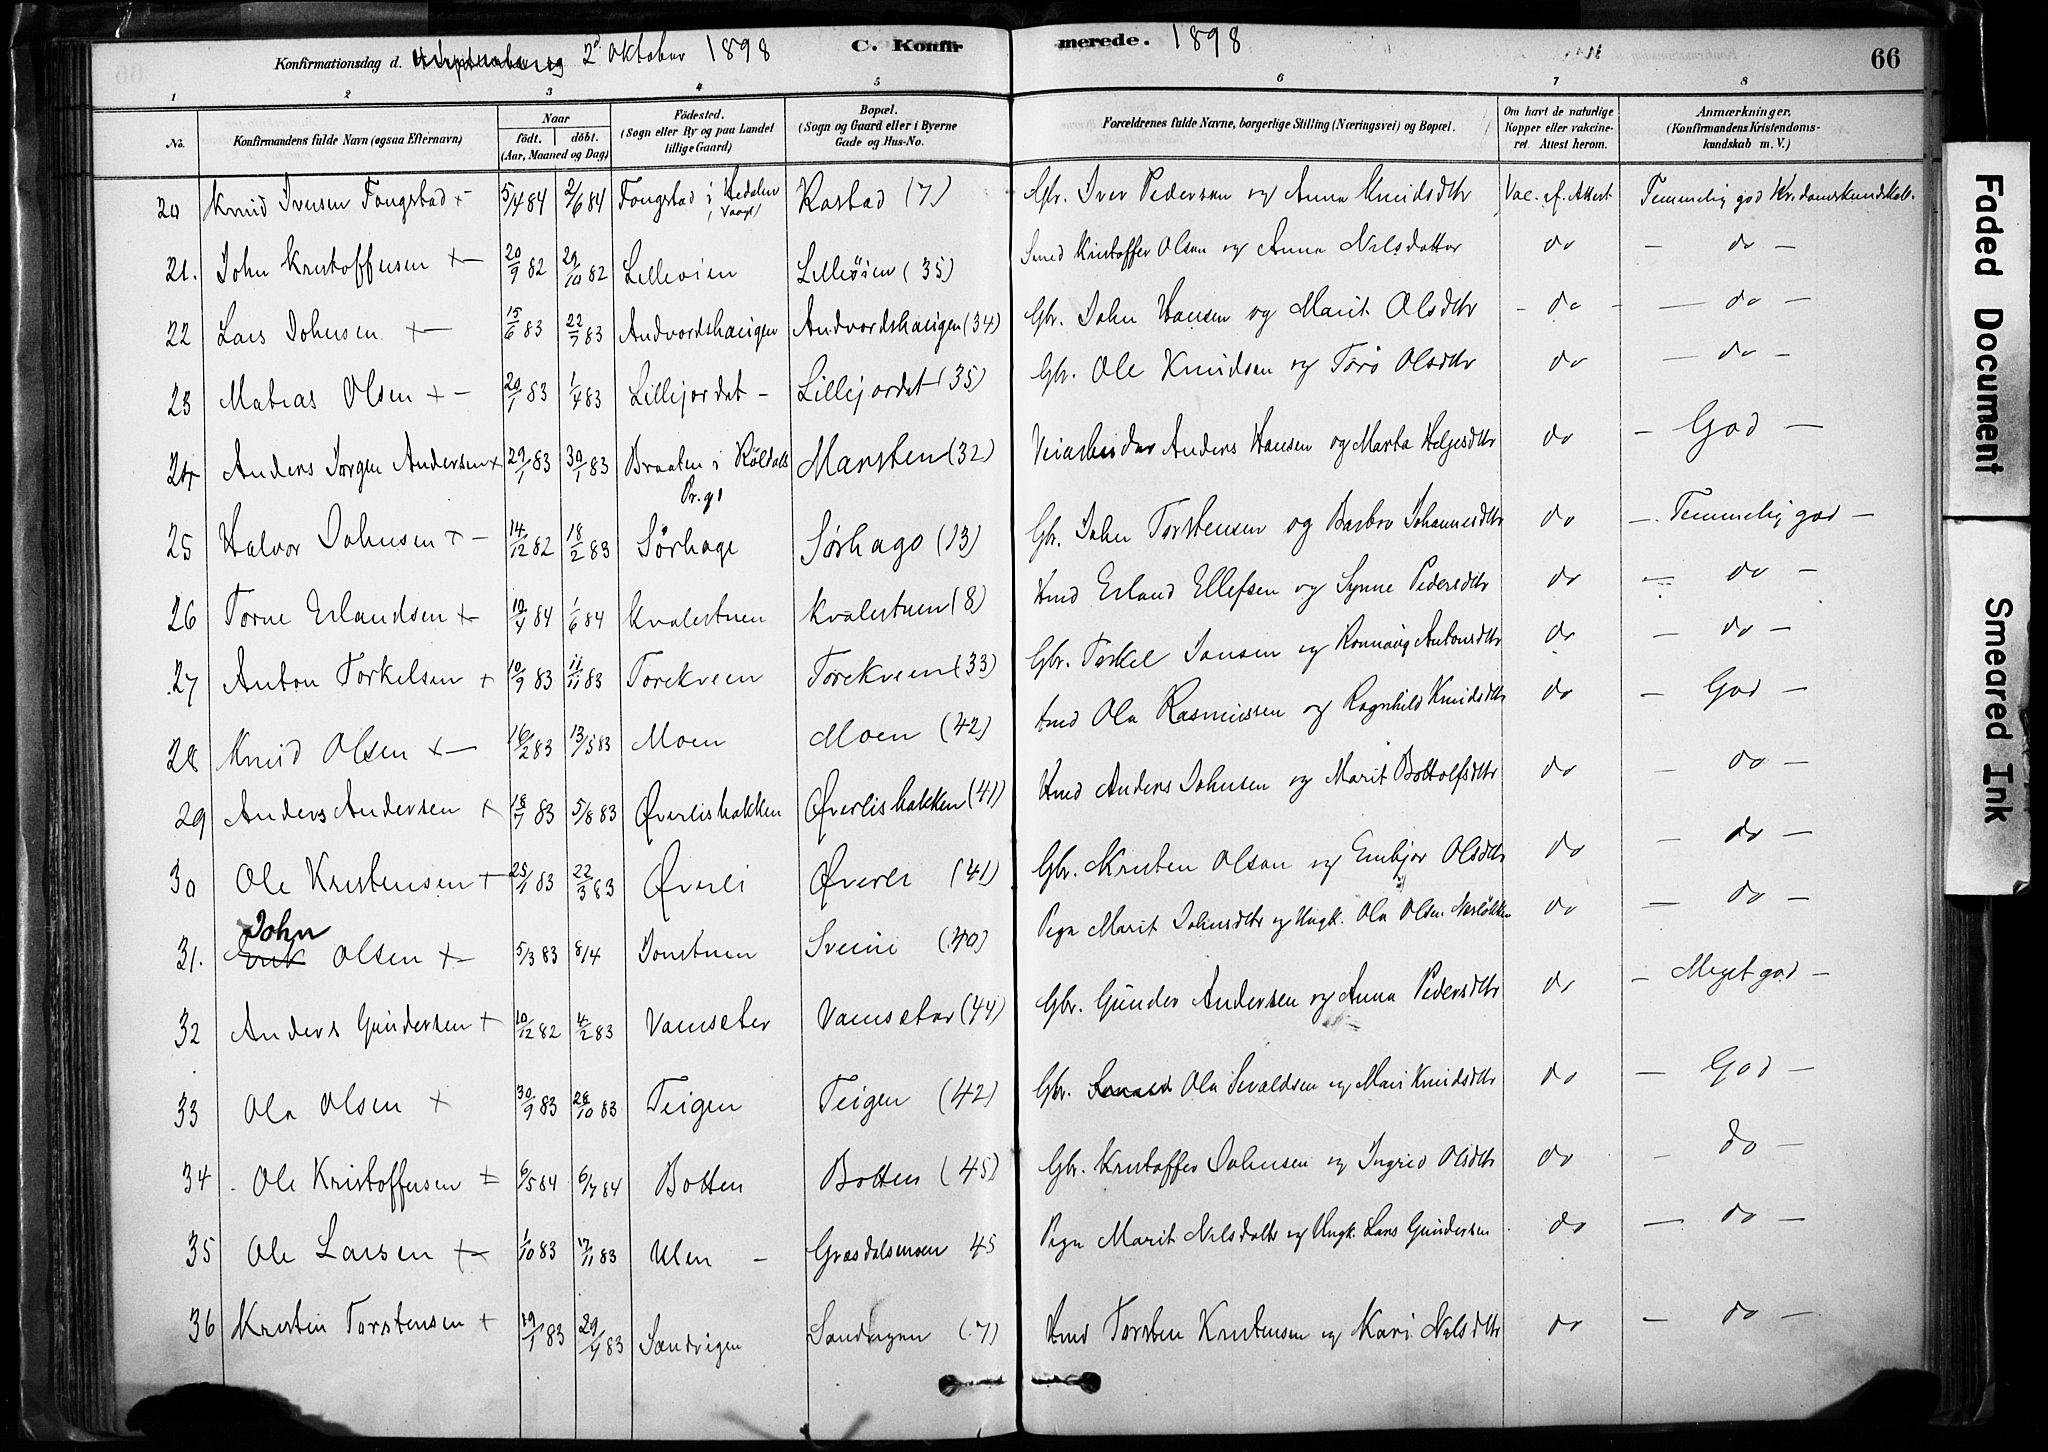 Konfirmationsdag d. 2d Oktober 1898 C. Konfirmerede. 1898 66
1 2 3 4 5 6 7 8
No. Konfirmandens fulde Navn (ogsaa Efternavn) Naar født. døbt. (Aar, Maaned og Dag) Fødested. (Sogn eller By og paa Landet tillige Gaard) Bopæl. (Sogn og Gaard eller i Byerne Gade og Hus-No. Forældrenes fulde Navne, borgerlige Stilling (Næringsvei) og Bopæl. Om havt de naturlige Kopper eller vakcineret. Attest herom. Anmærkninger. (Konfirmandens Kristendomskundskab m. V.)
20 Knud Iversen Fongstad + 5/4 84 2/6 84 Fongstad i Hedalen (Vaage) Rastad (7) Gbr. Iver Pedersen og Anna Knudsdtr Vac. ef. Attest Temmelig god Kr.domskundskab.
21. John Kristoffersen + — 20/9 82 29/10 82 Lilleøien Lilleøien (35) Smed Kristoffer Olsen og Anna Nilsdatter do — do —
22 Lars Johnsen + — 15/6 83 22/7 83 Andvordshaugen Andvordshaugen (34) Gbr. John Hansen og Marit Olsdtr - do - — do —
23 Matias Olsen + — 20/1 83 1/4 83 Lillejordet — Lillejordet (35) Gbr. Ole Knudsen og Torø Olsdtr do — do —
24 Anders Jørgen Andersen + 29/1 83 30/1 83 Braaten i Røldals Pr.gj Marsten (32) Veiarbeider Anders Hansen og Marta Helgesdtr do — God —
25 Halvor Johnsen + — 14/12 82 18/2 83 Sørhage Sørhage (13) Gbr. John Torstensen og Barbro Johannesdtr do — Temmelig god —
26 Torne Erlandsen + — 19/4 84 1/6 84 Kvalestuen Kvalestuen (8) Hmd Erland Ellefsen og Synne Pedersdtr do — do —
27 Anton Torkelsen + 10/9 83 11/11 83 Torekveen Torekveen (33) Gbr. Torkel Jansen og Rønnaug Antonsdtr do — do —
28 Knud Olsen + — 16/2 83 13/5 83 Moen Moen (42) Hmd Ola Rasmussen og Ragnhild Knudsdtr do — God —
29 Anders Andersen + 18/7 83 5/8 83 Øverlisbakken Øverlisbakken (41) Hmd Anders Johnsen og Marit Bottolfsdtr do — do —
30 Ole Kristensen + 25/1 83 22/3 83 Øverli Øverli (41) Gbr. Kristen Olsen og Embjør Olsdtr do — do —
31. John Olsen + — 5/3 83 8/4 Jonstuen Sveine (40) Pige Marit Johnsdtr og Ungk. Ola Olsen do — do —
32 Anders Gundersen + 10/12 82 4/2 83 Vamseter Vamseter (44) Gbr. Gunder Andersen og Anna Pedersdtr do — Meget god —
33 Ola Olsen + 30/9 83 28/10 83 Teigen Teigen (42) Gbr. Ola Sevaldsen og Mari Knudsdtr do — God —
34 Ole Kristoffersen + 6/5 84 6/7 84 Botten Botten (45) Gbr. Kristoffer Johnsen og Ingrid Olsdtr do — do —
35 Ole Larsen + — 1/10 83 17/11 83 Ulen — Grøsdalsmoen 45 Pige Marit Nilsdatter og Ungk. Lars Gundersen do — do —
36 Kristen Torstensen + 19/1 83 29/4 83 Sandvigen Sandvigen (7) Hmd Torsten Kristensen og Kari Nilsdtr do — do —
Faded Document
Smeared Ink